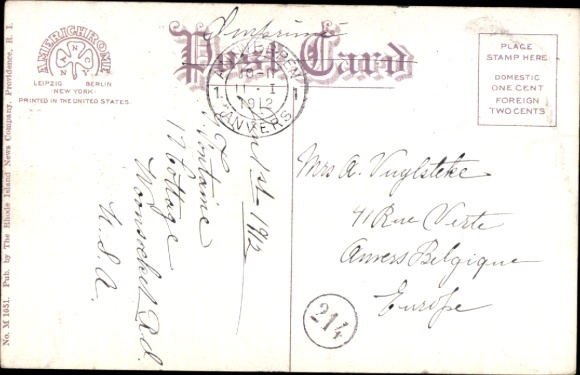 Imprimé
Post Card
AMERICHROME
A N C N Y
LEIPZIG BERLIN
NEW YORK
PRINTED IN THE UNITED STATES.
No. M 1651. Pub. by The Rhode Island News Company, Providence, R. I.
PLACE
STAMP HERE
DOMESTIC
ONE CENT
FOREIGN
TWO CENTS
ANTWERPEN
11 - I
1912
1 1
ANVERS
1st 1912
Fontaine
17 Cottage
Woonsocket R.I.
U.S.A.
Mrs A. Vuylsteke
41 Rue Verte
Anvers Belgique
Europe
214